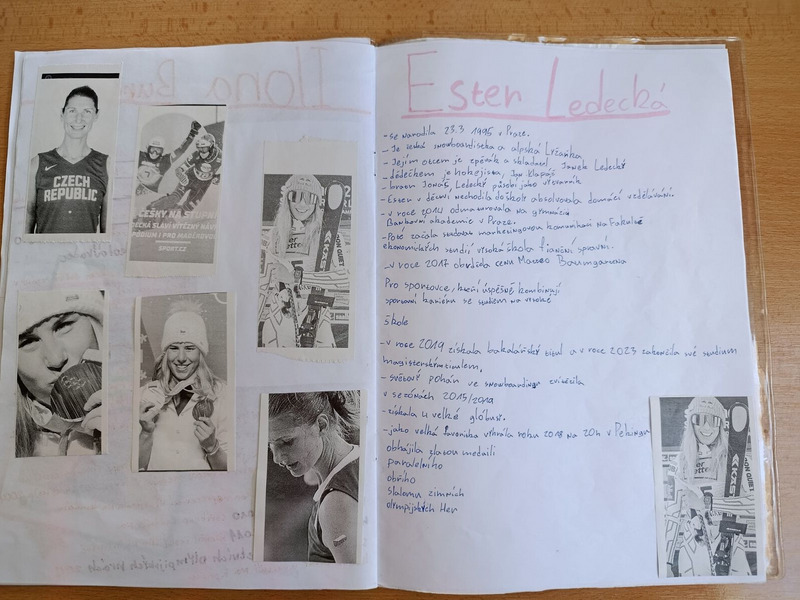 Ilona Bur
CZECH
REPUBLIC
ČESKÝ NA STUPNI
SLAVÍ VÍTĚZNÝ NÁV
PÓDIUM I PRO
SPORT.CZ
Ester Ledecká
- se narodila 23.3 1995 v Praze.
- Je česká snowboardistka a alpská lyžařka
- Jejím otcem je zpěvák a skladatel Janek Ledecký
- dědečkem je hokejista, Jan Klapáč
- bratr Jonáš Ledecký působí jako výtvarník
- Ester v dětví nechodila do škole absolvovala domácí vzdělávání.
- v roce 2014 odmaturovala na gymnázia
Bankovní akademie v Praze.
- Poté začala studovat marketingovou komunikaci na Fakultě
ekonomických studií vysoká škola finanční správní.
- v roce 2017 obdržela cenu Marco Baumgartena
Pro sportovce, kteří úspěšně kombinují
sportovní kariéru se studiem na vysoké
škole
- v roce 2019 získala bakalářský titul a v roce 2023 zakončila své studium
magisterským titulem,
- světový pohár ve snowboardingu zvítězila
v sezónách 2015/2019
- získala 4 velké glóbusy.
- jako velká favoritka vyhrála roku 2018 na 20h v Pekingu
obhájila zlatou medaili
paralelního
obřího
slalomu zimních
olympijských her
KÄS